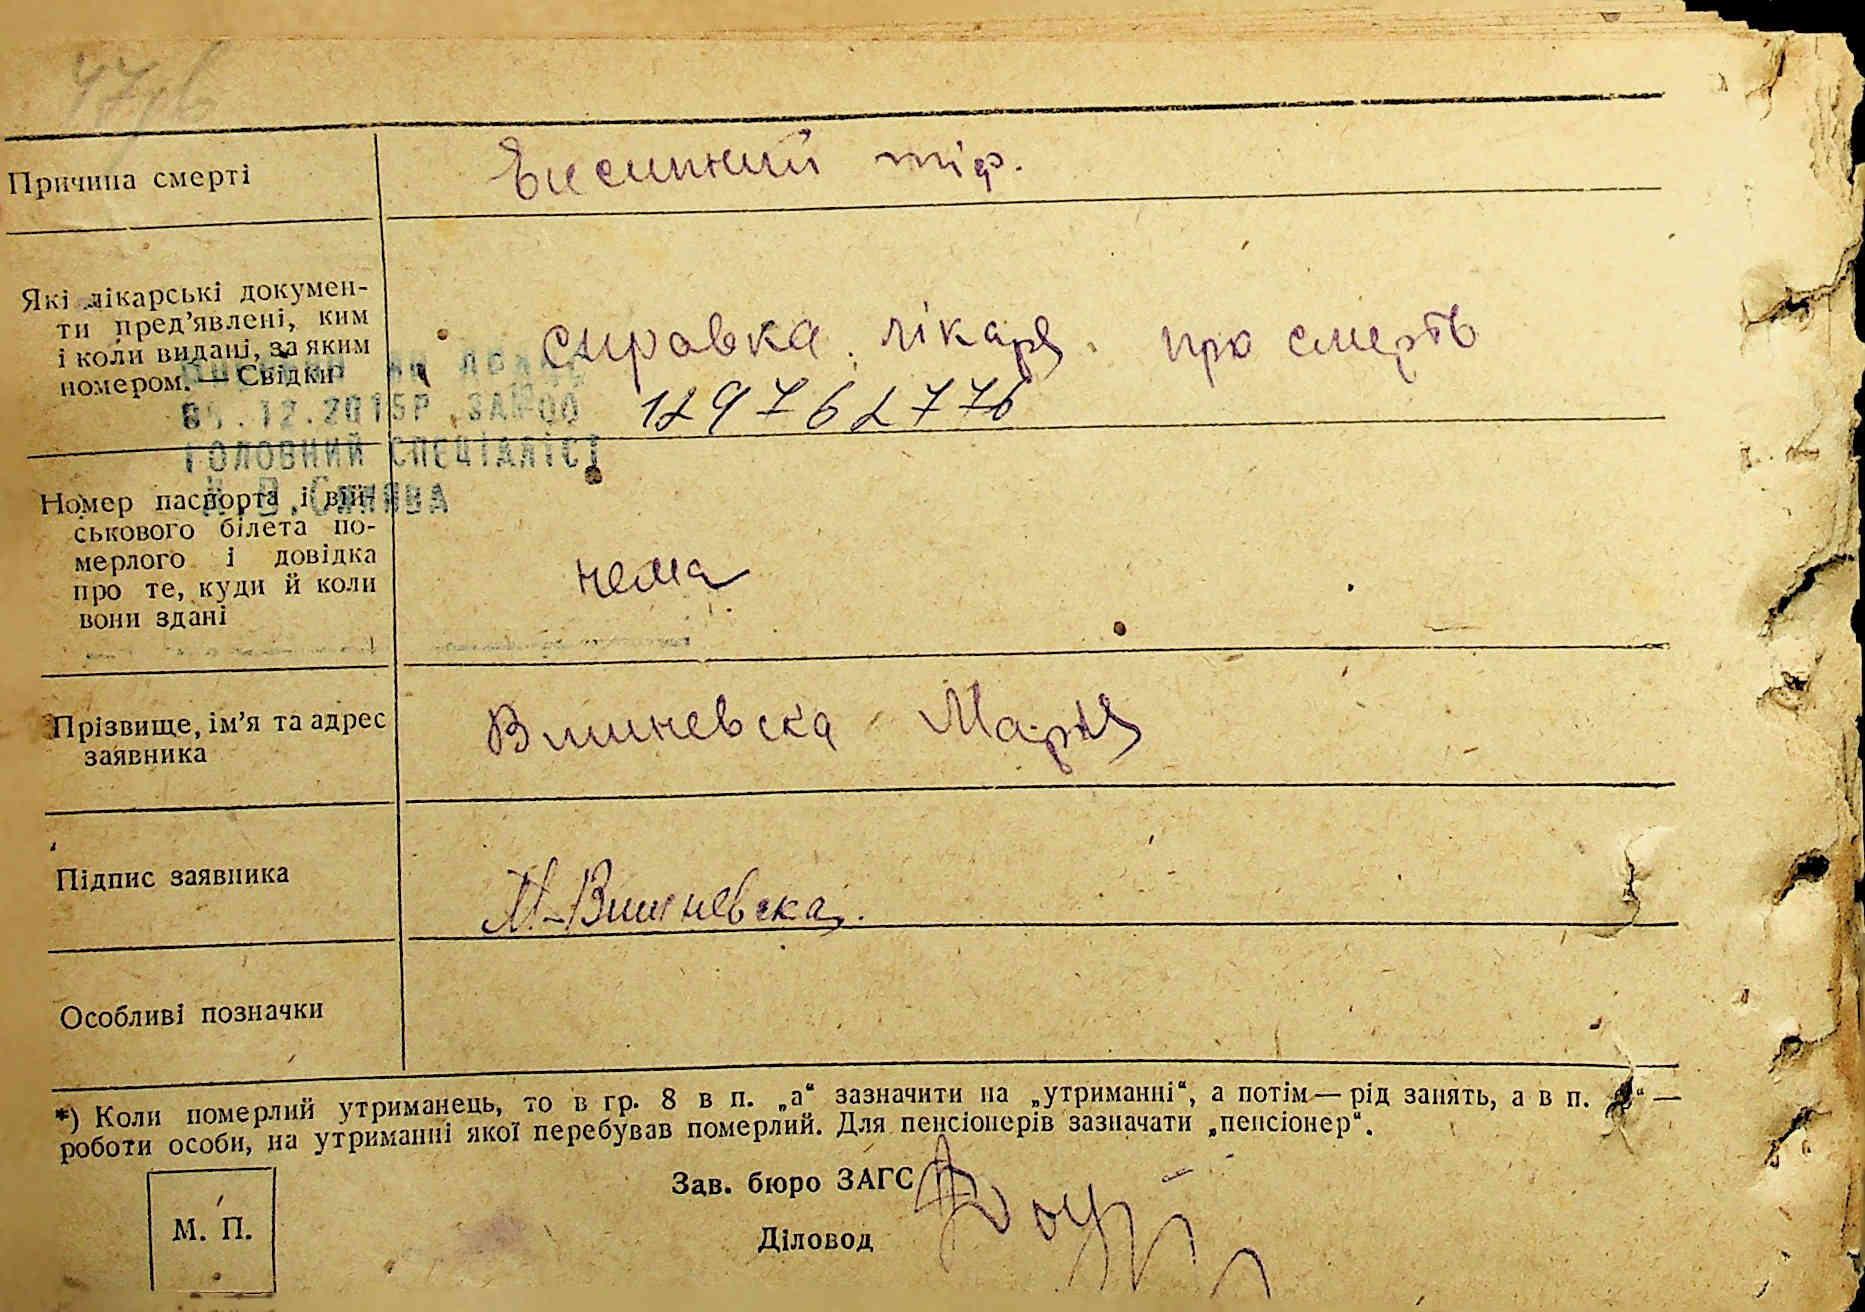 Причина смерті
Висипний тіф.
Які лікарські докумен-
ти пред'явлені, ким
і коли видані, за яким
номером. — Свідки
справка лікаря про смерть
129762776
05.12.2015Р
ГОЛОВНИЙ СПЕЦІАЛІСТ
Номер паспорта і вій-
ськового білета по-
мерлого і довідка
про те, куди й коли
вони здані
нема
Прізвище, ім'я та адрес
заявника
Вишневска Марія
Підпис заявника
М. Вишневска.
Особливі позначки
*) Коли померлий утриманець, то в гр. 8 в п. „а“ зазначити на „утриманні“, а потім — рід занять, а в п. —
роботи особи, на утриманні якої перебував померлий. Для пенсіонерів зазначати „пенсіонер“.
Зав. бюро ЗАГС
Діловод
М. П.